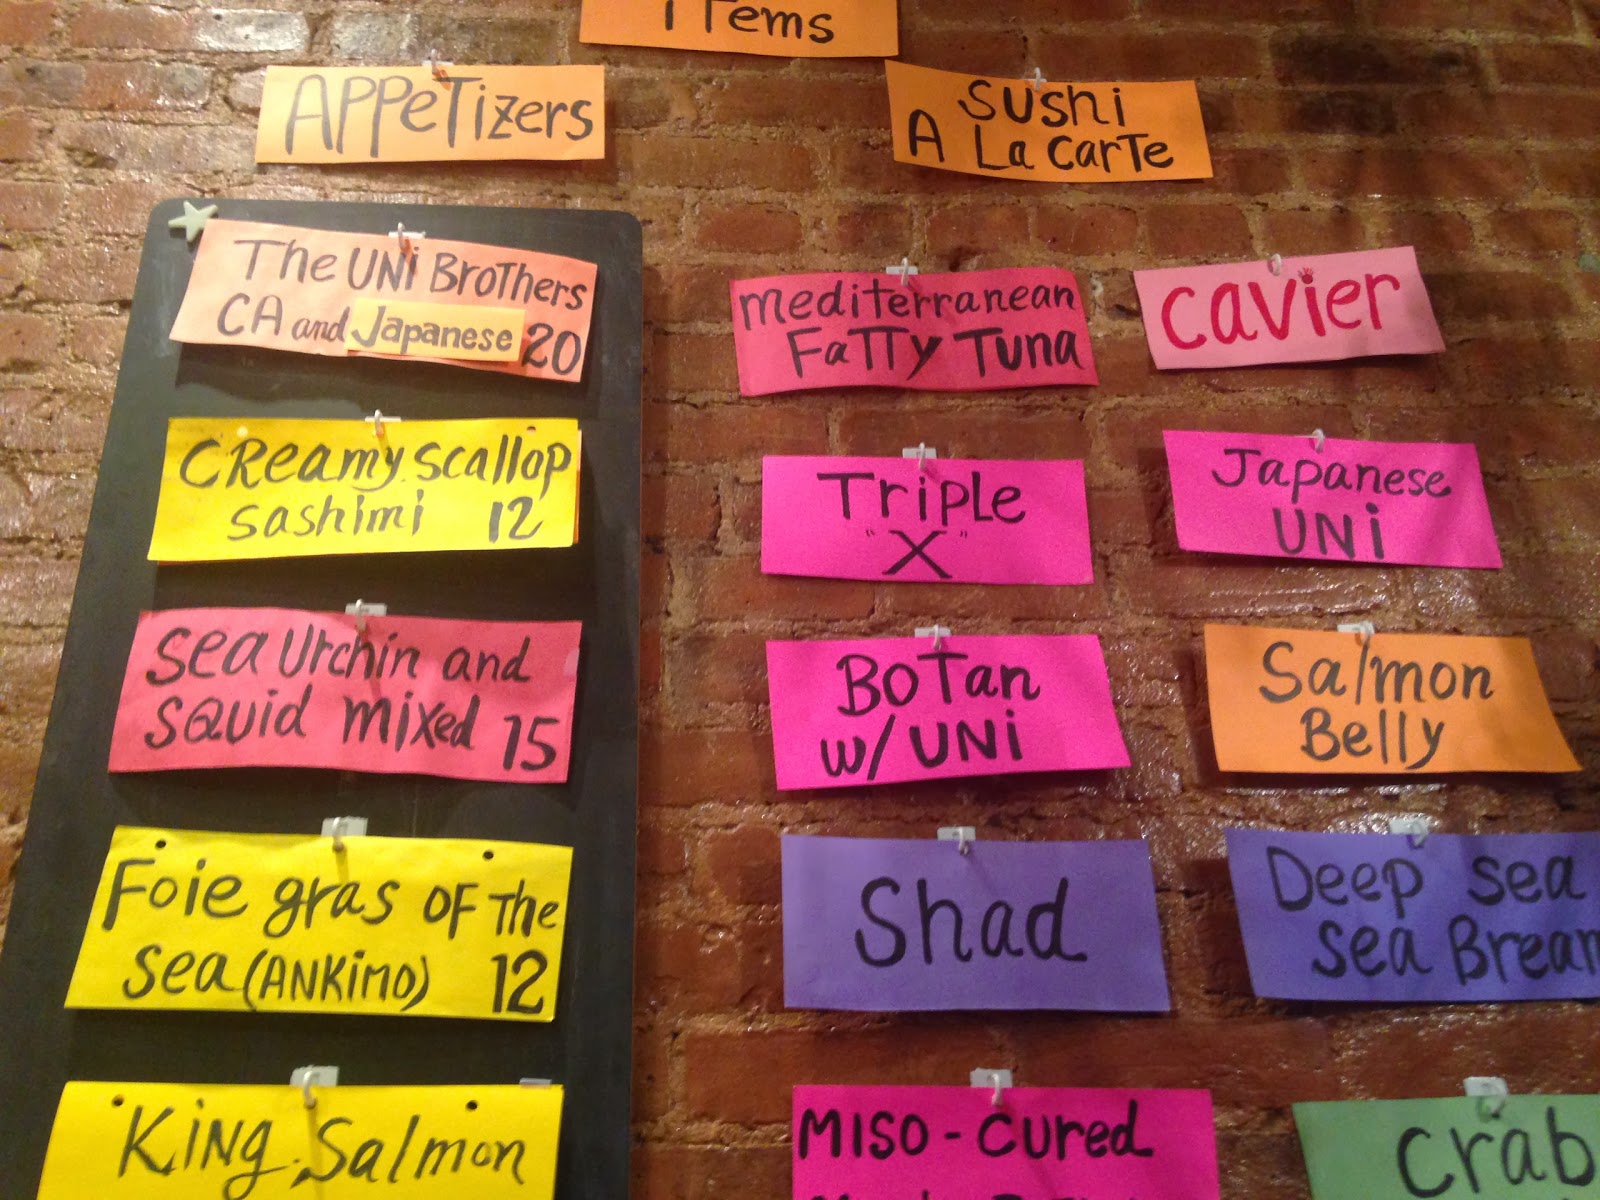 iTems
APPeTizers
SUSHi
A La CarTe
The UNi BroThers
CA and Japanese 20
CReamy scallop
sashimi 12
sea Urchin and
squid mixed 15
Foie gras OF The
sea (ANKiMO) 12
KiNg Salmon
mediterranean
FaTTy Tuna
Triple
"X"
BoTan
w/ UNi
Shad
MISO - Cured
cavier
Japanese
UNi
Salmon
Belly
Deep sea
sea Bream
crab